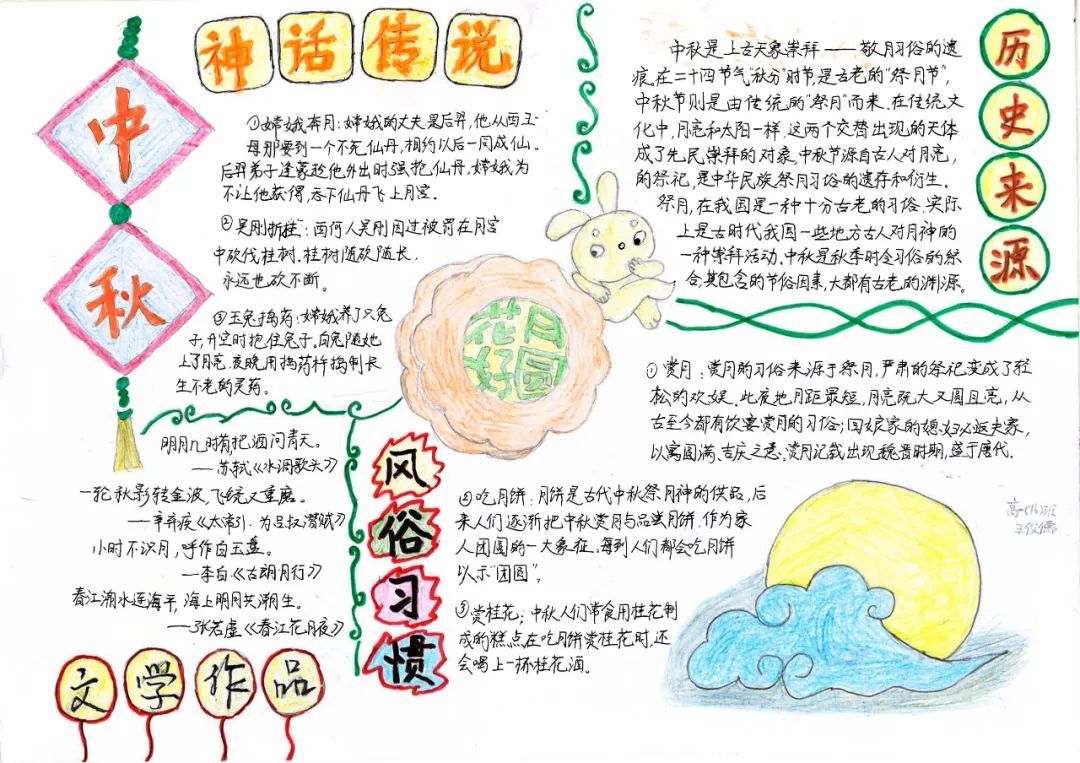 中秋
神话传说
①嫦娥奔月：嫦娥的丈夫是后羿，他从西王
母那要到一个不死仙丹，相约以后一同成仙。
后羿弟子逢蒙趁他外出时强抢仙丹，嫦娥为
不让他获得，吞下仙丹飞上月宫。
②吴刚折桂：西河人吴刚因过被罚在月宫
中砍伐桂树。桂树随砍随长，
永远也砍不断。
③玉兔捣药：嫦娥养了只兔
子，升空时抱住兔子。白兔随她
上了月亮，夜晚用捣药杵捣制长
生不老的灵药。
花好月圆
历史来源
中秋是上古天象崇拜——敬月习俗的遗
痕。在二十四节气“秋分”时节，是古老的“祭月节”，
中秋节则是由传统的“祭月”而来。在传统文
化中，月亮和太阳一样，这两个交替出现的天体
成了先民崇拜的对象。中秋节源自古人对月亮，
的祭祀，是中华民族祭月习俗的遗存和衍生。
祭月，在我国是一种十分古老的习俗，实际
上是古时代我国一些地方古人对月神的
一种崇拜活动。中秋是秋季时令习俗的综
合，其包含的节俗因素，大都有古老的渊源。
明月几时有，把酒问青天。
——苏轼《水调歌头》
一轮秋影转金波，飞镜又重磨。
——辛弃疾《太常引·为吕叔潜赋》
小时不识月，呼作白玉盘。
——李白《古朗月行》
春江潮水连海平，海上明月共潮生。
——张若虚《春江花月夜》
文学作品
风俗习惯
①赏月：赏月的习俗来源于祭月，严肃的祭祀变成了轻
松的欢娱。此夜地月距最短，月亮既大又圆且亮，从
古至今都有饮宴赏月的习俗；回娘家的媳妇必返夫家，
以寓圆满、吉庆之意。赏月记载出现魏晋时期，盛于唐代。
②吃月饼：月饼是古代中秋祭月神的供品，后
来人们逐渐把中秋赏月与品尝月饼，作为家
人团圆的一大象征。每到人们都会吃月饼
以示“团圆”。
③赏桂花：中秋人们常食用桂花制
成的糕点，在吃月饼赏桂花时，还
会喝上一杯桂花酒。
高一(16)班